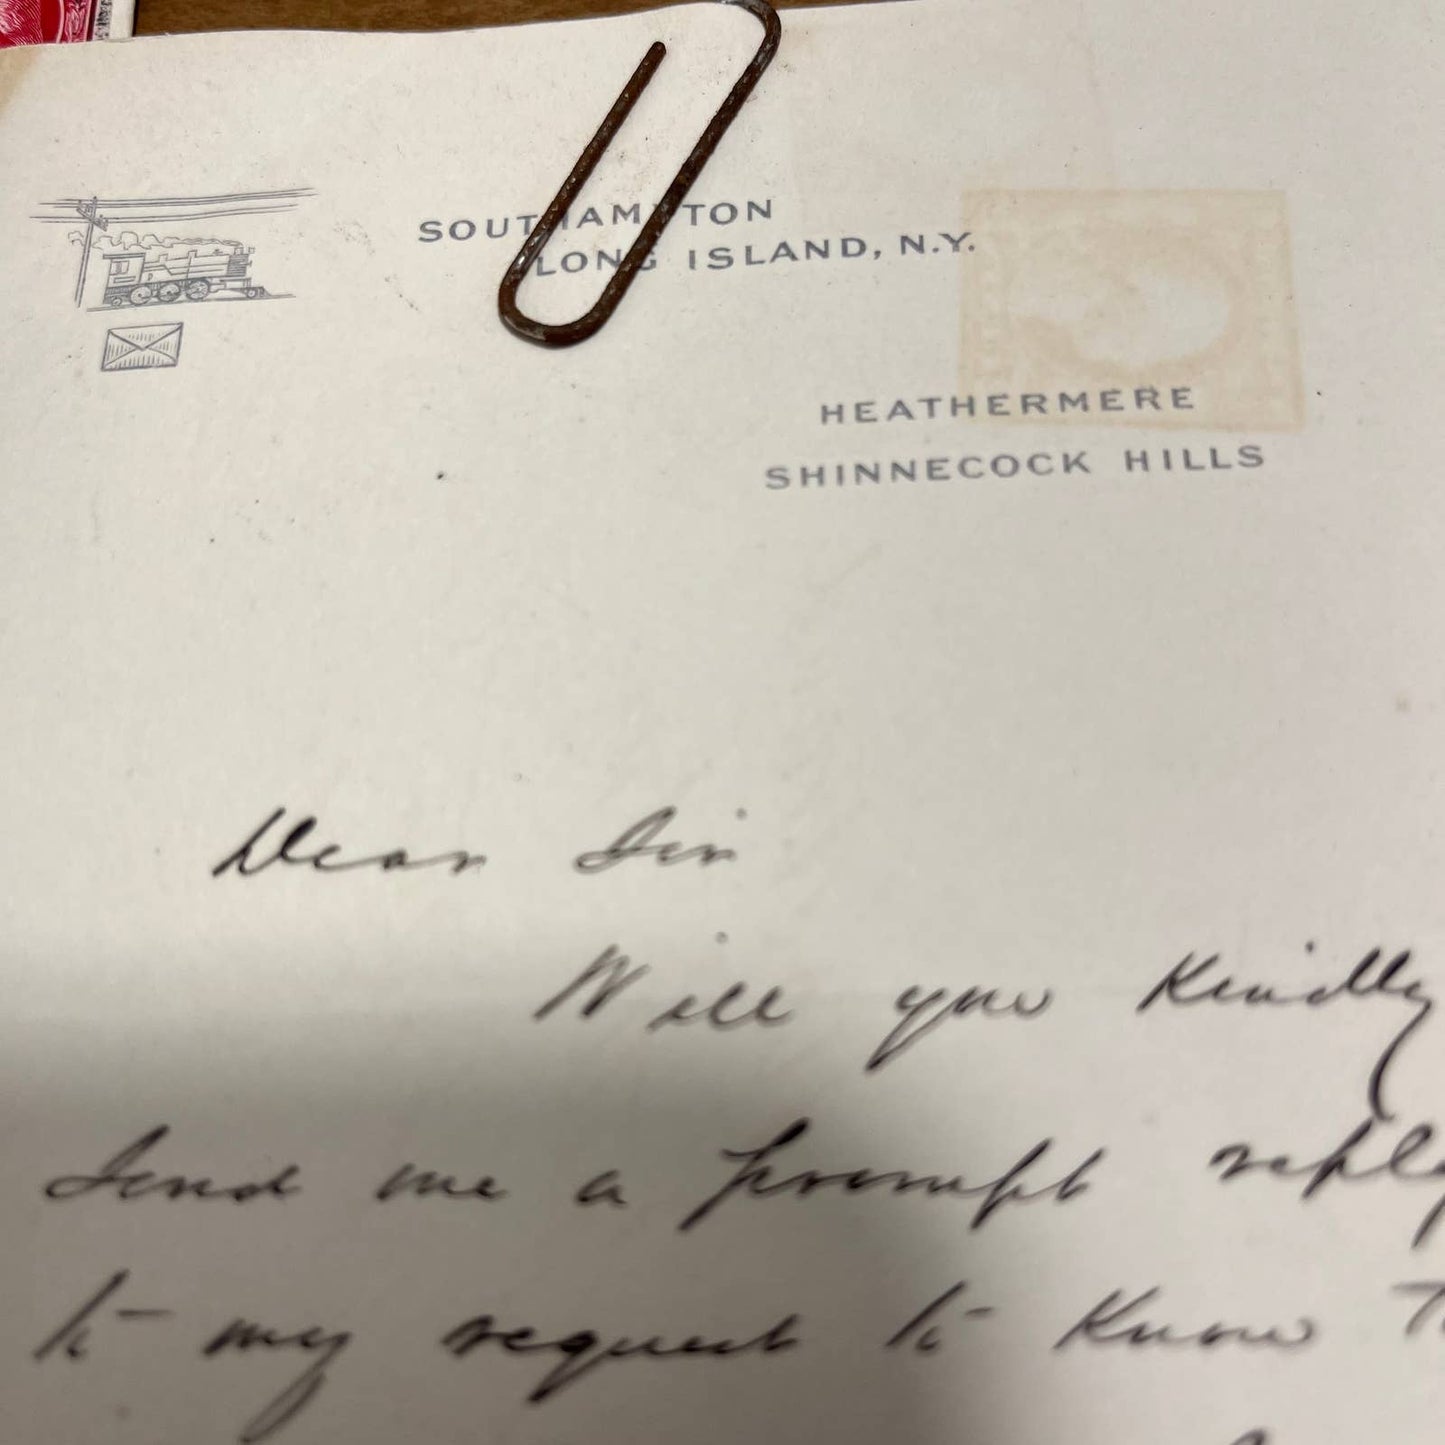 SOUTHAMPTON
LONG ISLAND, N.Y.
HEATHERMERE
SHINNECOCK HILLS
Dear Sir
Will you Kindly
Send me a prompt reply
to my request to Know